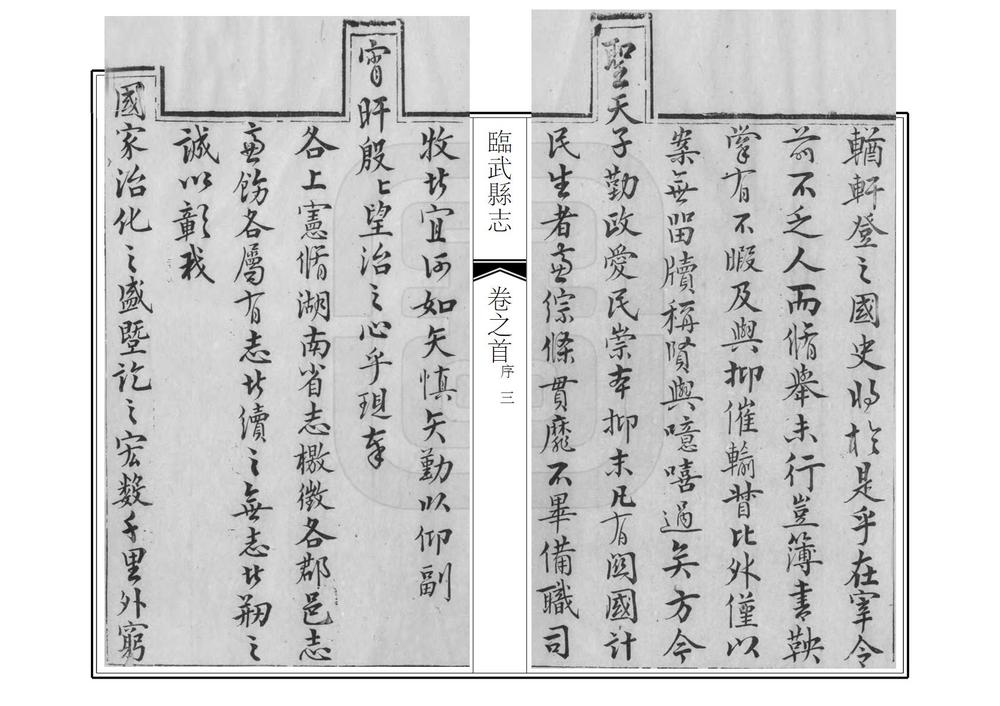 輶軒登之國史將於是乎在宰令
前不乏人而脩舉未行豈簿書鞅
掌有不暇及與抑催輸督比外僅以
案無留牘稱賢與噫嘻過矣方今
聖天子勤政愛民崇本抑末凡有関國計
民生者盡綜條貫靡不畢備職司
臨武縣志
卷之首
序
三
牧者宜何如矢慎矢勤以仰副
宵旰殷殷望治之心乎現奉
各上憲脩湖南省志檄徵各郡邑志
並飭各屬有志者續之無志者剏之
誠以彰我
國家治化之盛曁訖之宏數千里外窮